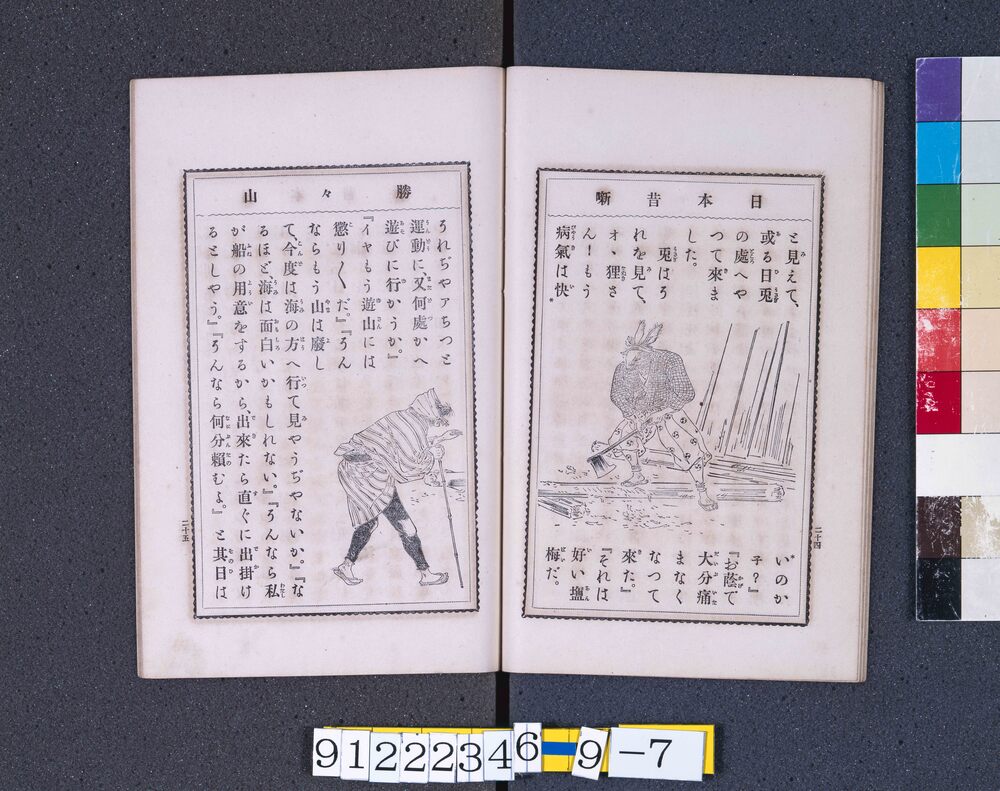 日本昔噺
と見えて、
或る日兎
の處へや
つて來ま
した。
兎はろ
れを見て、
オヽ狸さ
ん！もう
病氣は快*
*いのか
子？』
『お蔭で
大分痛
まなく
なつて
來た。』
『それは
好い塩
梅だ。
二十四
勝々山
うれぢやァちつと
運動に、又何處かへ
遊びに行かうか。』
『イヤもう遊山には
懲り〱だ。』『ろん
ならもう山は廢し
て、今度は海の方へ行て見やうぢやないか。』『な
るほど、海は面白いかもしれない。』『ろんなら私
が船の用意をするから、出來たら直ぐに出掛け
るとしやう。』『ろんなら何分頼むよ。』と其日は
二十五
9122234 6 9-7